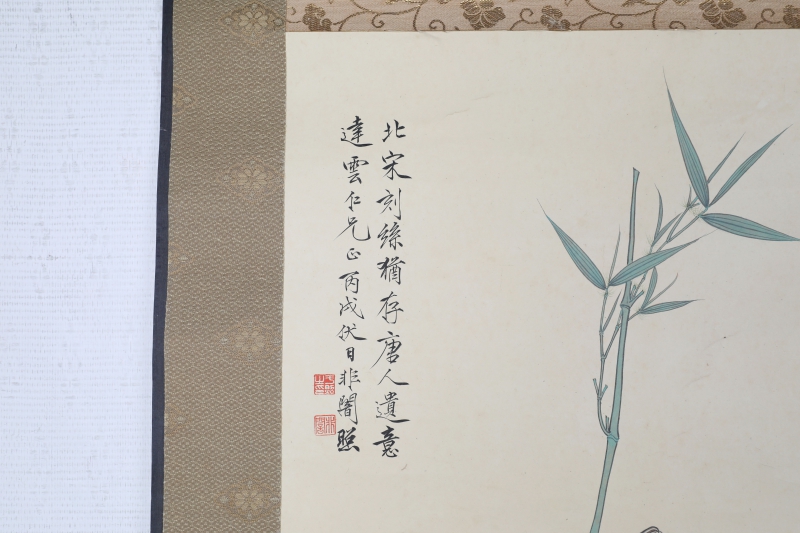 北宋刻絲猶存唐人遺意
達雲仁兄正丙戌伏日非闇照